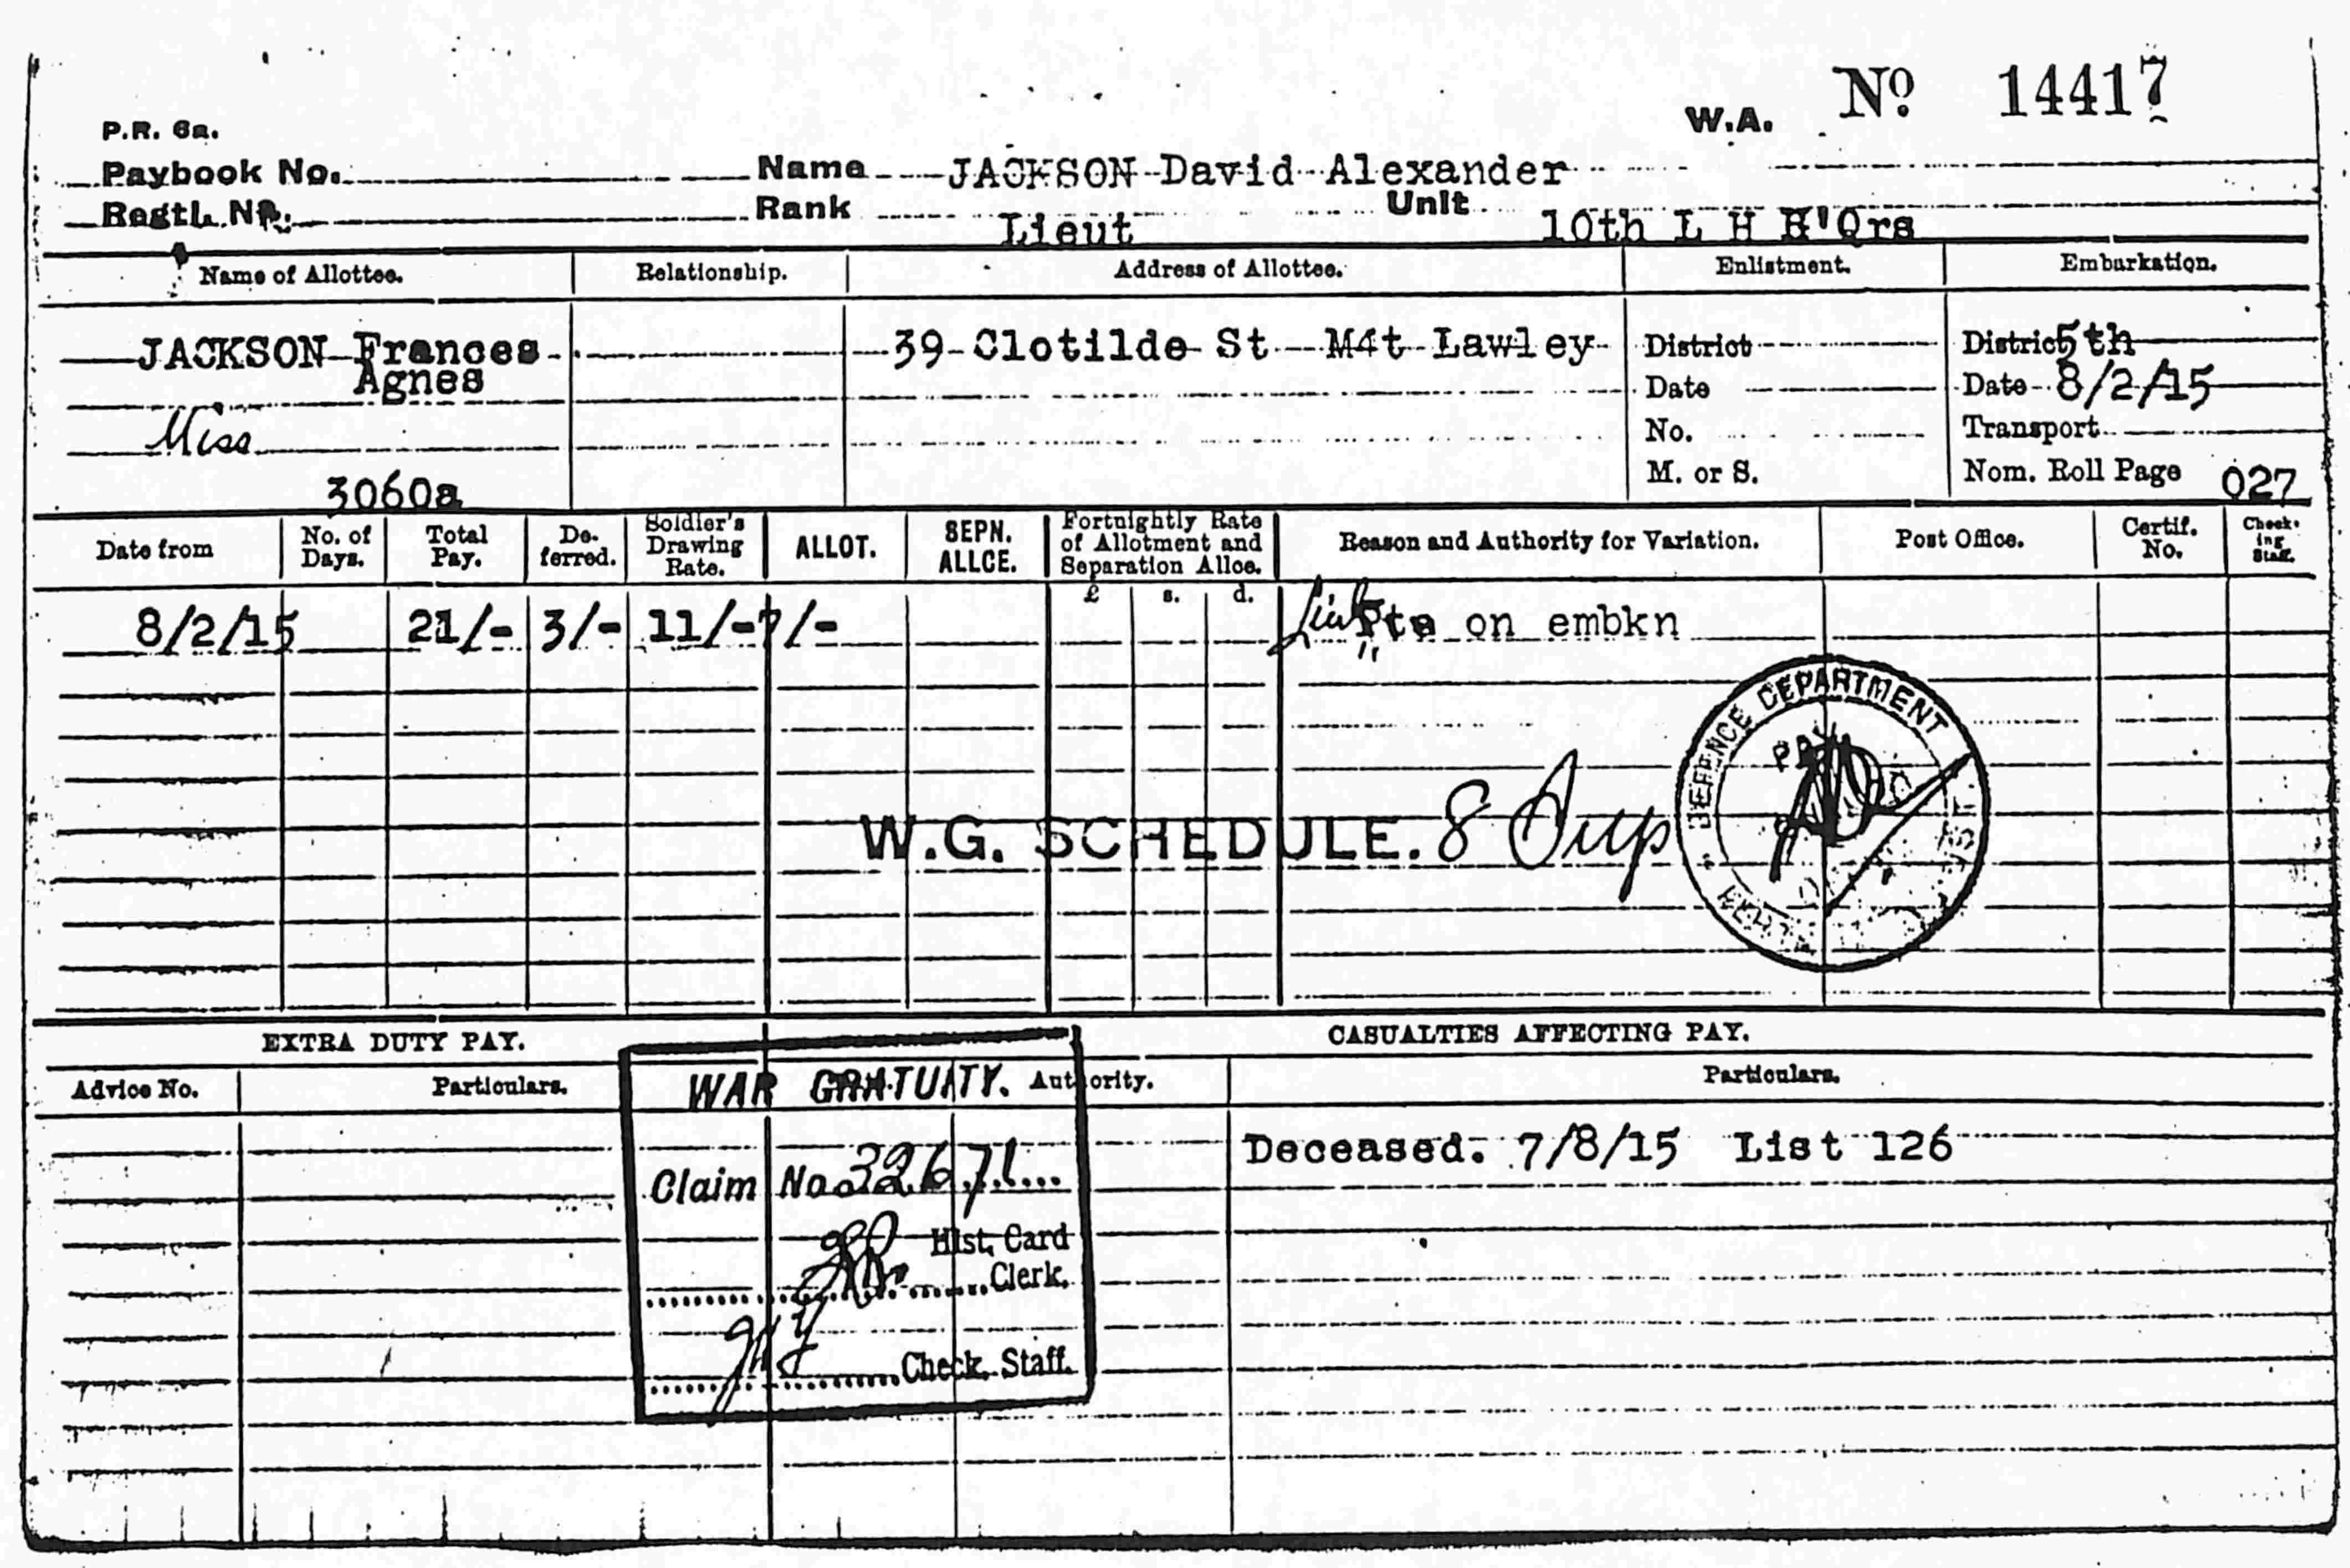 W.A. No 14417
P.R. 6a.
Paybook No. Name JACKSON David Alexander
Regtl. No. Rank Lieut Unit 10th L H H'Qrs
Name of Allottee. Relationship. Address of Allottee. Enlistment. Embarkation.
JACKSON Frances 39 Clotilde St M4t Lawley District District 5th
Agnes Date Date 8/2/15
Miss No. Transport
3060a M. or S. Nom. Roll Page 027
Date from No. of Days. Total Pay. De-ferred. Soldier's Drawing Rate. ALLOT. SEPN. ALLCE. Fortnightly Rate of Allotment and Separation Allce. Reason and Authority for Variation. Post Office. Certif. No. Check-ing Staff.
£ s. d.
8/2/15 21/- 3/- 11/- 7/- Lieut Pte on embkn
DEFENCE DEPARTMENT
PAY
W.G. SCHEDULE. 8 Sup
EXTRA DUTY PAY. CASUALTIES AFFECTING PAY.
Advice No. Particulars. Authority. Particulars.
WAR GRATUITY.
Deceased. 7/8/15 List 126
Claim No 32671
Hist. Card
Clerk.
Check. Staff.